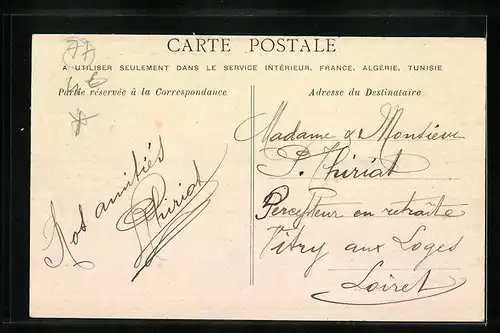 77
CARTE POSTALE
A UTILISER SEULEMENT DANS LE SERVICE INTÉRIEUR, FRANCE, ALGÉRIE, TUNISIE
Partie réservée à la Correspondance
Adresse du Destinataire
Nos amitiés
Thiriat
Madame & Monsieur
P. Thiriat
Percepteur en retraite
Vitry aux Loges
Loiret